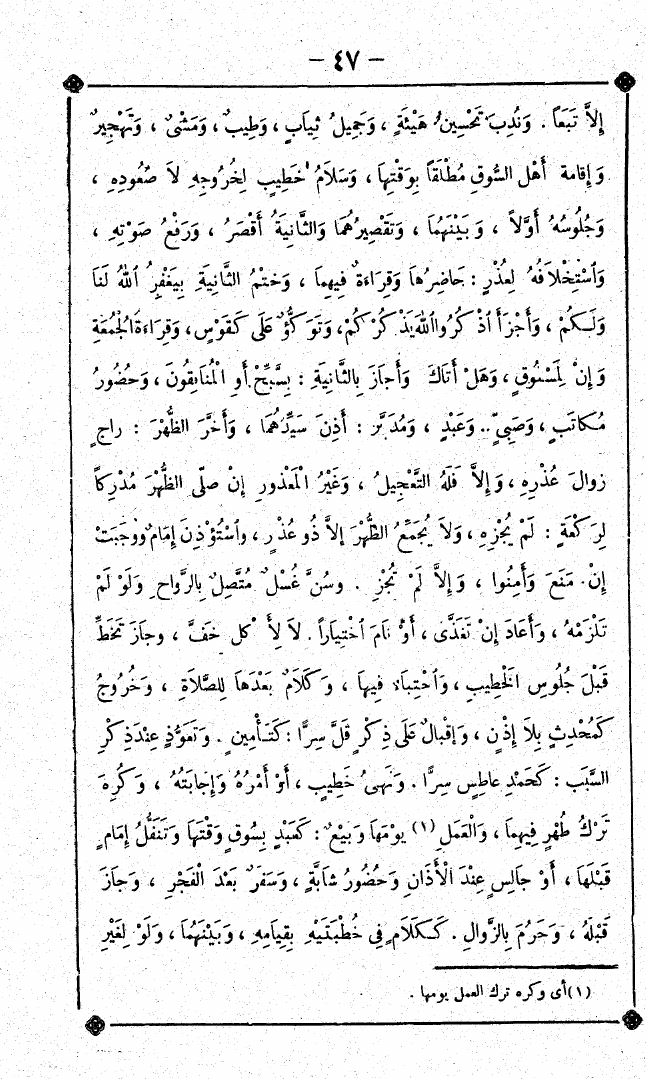 – ٤٧ –
إِلاَّ تَبَعاً . وَنُدِبَ تَحْسِينُ هَيْئَةٍ ، وَجَمِيلُ ثِيَابٍ ، وَطِيبٌ ، وَمَشْىٌ ، وَتَهْجِيرٌ
وَإِقامة أَهْلِ السُّوقِ مُطْلَقاً بِوَقْتِهَا ، وَسَلَامُ خَطِيبٍ لِخُرُوجِهِ لاَ صُعُودِهِ ،
وَجُلُوسُهُ أَوَّلاً ، وَبَيْنَهُمَا ، وَتَقْصِيرُهُمَا وَالثَّانِيَةُ أَقْصَرُ ، وَرَفْعُ صَوْتِهِ ،
وَٱسْتِخْلَافُهُ لِعُذْرٍ : حَاضِرُهَا وَقِرَاءَةٌ فِيهِمَا ، وَخَتْمُ الثَّانِيَةِ بِيَغْفِرُ اللهُ لَنَا
وَلَكُمْ ، وَأَجْزَأَ اُذْكُرُوا اللهَ يَذْكُرْكُمْ ، وَتَوَكُّؤٌ عَلَى كَقَوْسٍ ، وَقِرَاءَةُ الْجُمُعَةِ
وَإِنْ لِمَسْبُوقٍ ، وَهَلْ أَتَاكَ وَأَجَازَ بِالثَّانِيَةِ : بِسَبِّحْ أَوِ الْمُنَافِقُونَ ، وَحُضُورُ
مُكاتَبٍ ، وَصَبِىٍّ .. وَعَبْدٍ ، وَمُدَبَّرٍ : أَذِنَ سَيِّدُهُمَا ، وَأَخَّرَ الظُّهْرَ : راجٍ
زوالَ عُذْرِهِ ، وَإِلاَّ فَلَهُ التَّعْجِيلُ ، وَغَيْرُ الْمَعْذُورِ إِنْ صَلَّى الظُّهْرَ مُدْرِكاً
لِرَكْعَةٍ : لَمْ يُجْزِهِ ، وَلاَ يُجَمِّعُ الظُّهْرَ إِلاَّ ذُو عُذْرٍ ، واسْتُؤْذِنَ إِمَامٌ ووَجَبَتْ
إِنْ مَنَعَ وَأَمِنُوا ، وَإِلاَّ لَمْ تُجْزِ . وسُنَّ غُسْلٌ مُتَّصِلٌ بِالرَّوَاحِ وَلَوْ لَمْ
تَلْزَمْهُ ، وَأَعَادَ إِنْ تَغَذَّى ، أَوْ نَامَ ٱخْتِيَاراً . لاَ لِأَكْلٍ خَفَّ ، وجازَ تَخَطٍّ
قَبْلَ جُلُوسِ الْخَطِيبِ ، وَٱحْتِبَاءٌ فِيهَا ، وَكَلَامٌ بَعْدَهَا لِلصَّلَاةِ ، وَخُرُوجُ
كَمُحْدِثٍ بِلاَ إِذْنٍ ، وَإِقْبَالٌ عَلَى ذِكْرٍ قَلَّ سِرًّا : كَتَأْمِينٍ . وَتَعَوُّذٍ عِنْدَ ذِكْرِ
السَّبَبِ : كَحَمْدِ عاطِسٍ سِرًّا . وَنَهْىُ خَطِيبٍ ، أَوْ أَمْرُهُ وَإِجَابَتُهُ ، وَكُرِهَ
تَرْكُ طُهْرٍ فِيهِمَا ، وَالْعَمَلِ (١) يومَهَا وَبَيْعٌ : كَعَبْدٍ بِسُوقٍ وَقْتَهَا وَتَنَفُّلُ إِمَامٍ
قَبْلَهَا ، أَوْ جَالِسٍ عِنْدَ الْأَذَانِ وَحُضُورُ شَابَّةٍ ، وَسَفَرٌ بَعْدَ الْفَجْرِ ، وَجَازَ
قَبْلَهُ ، وَحَرُمَ بِالزَّوَالِ . كَكَلَامٍ فِى خُطْبَتَيْهِ بِقِيَامِهِ ، وَبَيْنَهُمَا ، وَلَوْ لِغَيْرِ
(١) أى وكره ترك العمل يومها .